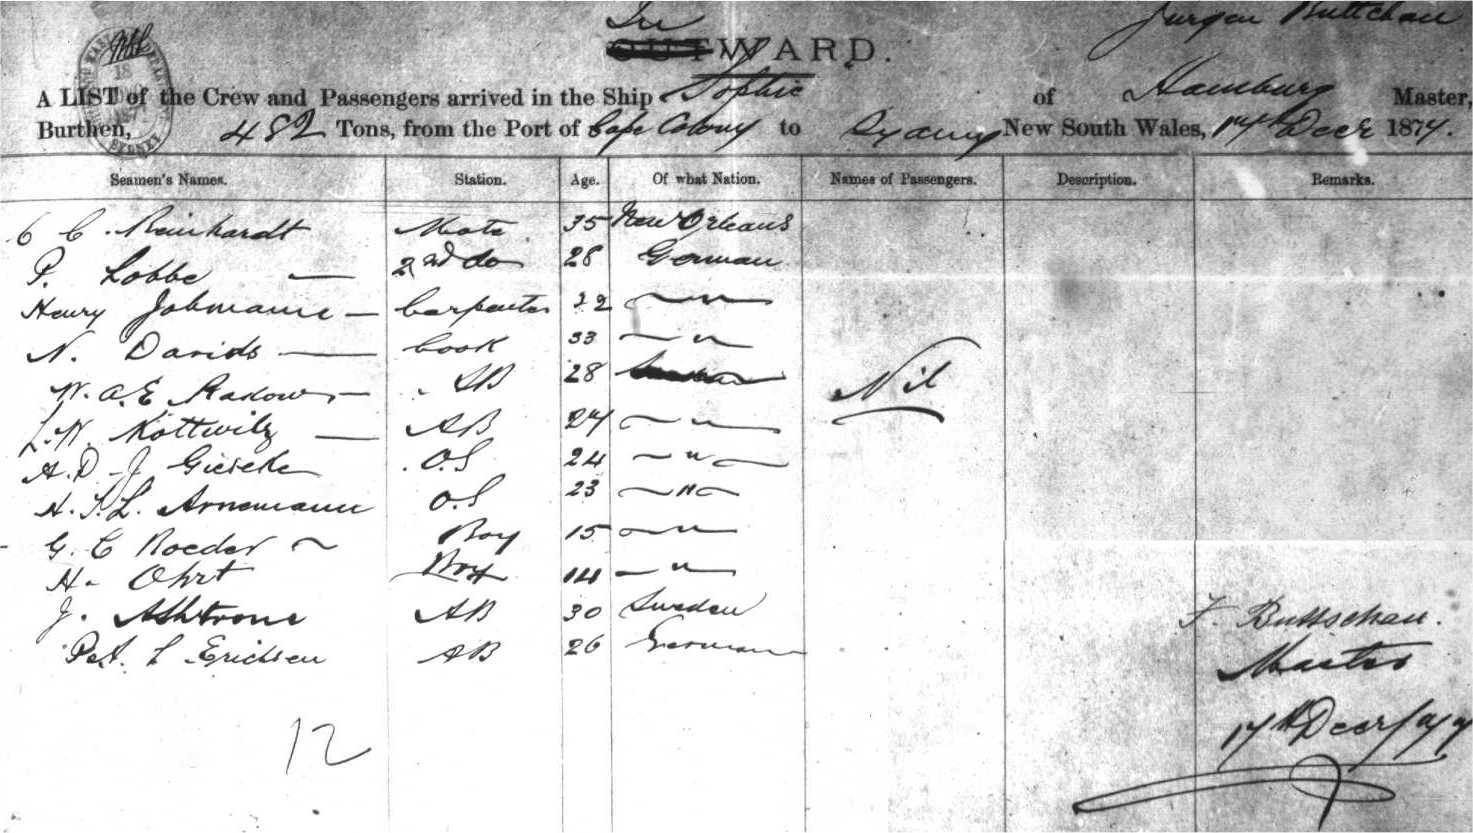 In Jurgen Buttchau
OUTWARD.
A LIST of the Crew and Passengers arrived in the Ship Sophie of Hamburg Master,
Burthen, 482 Tons, from the Port of Cape Colony to Sydney New South Wales, 17th Decr 1877.
Seamen's Names. Station. Age. Of what Nation. Names of Passengers. Description. Remarks.
C C. Reinhardt Mate 35 New Orleans
P. Lobbe — 2nd do 28 German
Henry Jobmann — Carpenter 32 — " —
N. Davids — Cook 33 — " —
W. A. E Radow — AB 28
Nil
L. W. Kottwitz — AB 24 — " —
A. D. J Gieseke O.S 24 — " —
H. J. L. Arnemann O.S 23 — " —
G. C Roeder ~ Boy 15 — " —
H. Ohrt Boy 14 — " —
J. AB 30 Sweden
J. Buttschau.
L Erichsen AB 26 German
Master
17th Decr /77
12